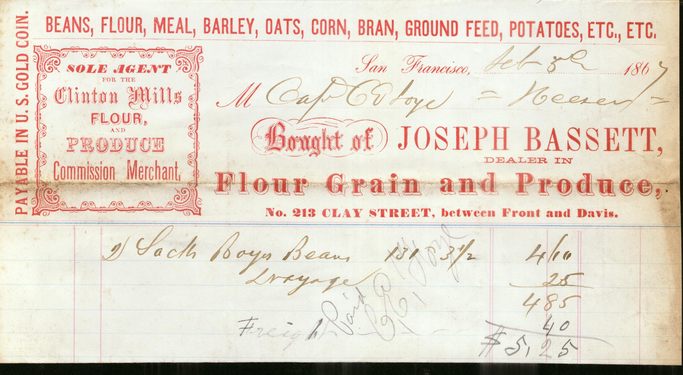 BEANS, FLOUR, MEAL, BARLEY, OATS, CORN, BRAN, GROUND FEED, POTATOES, ETC., ETC.
PAYABLE IN U.S. GOLD COIN.
SOLE AGENT
FOR THE
Clinton Mills
FLOUR,
AND
PRODUCE
Commission Merchant,
San Francisco, 1867
M Capt
Bought of JOSEPH BASSETT,
DEALER IN
Flour Grain and Produce,
No. 213 CLAY STREET, between Front and Davis.
Sack Boyes Beans 131 3 1/2 4/10
Drayage 25
485
Freigh 40
Paid
$ 5,25